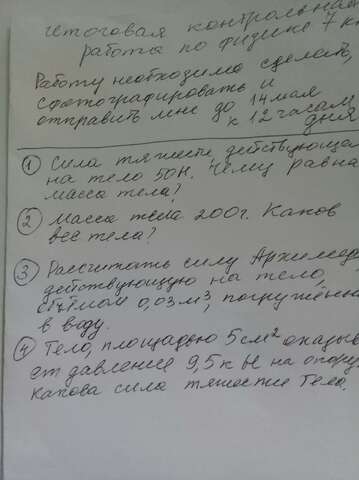 Итоговая контрольная
работа по физике 7 кл
Работу необходимо сделать,
сфотографировать и
отправить мне до 14 мая
к 12 часам
дня
① Сила тяжести действующая
на тело 50Н. Чему равна
масса тела?
② Масса тела 200г. Каков
вес тела?
③ Рассчитать силу Архимеда
действующую на тело,
объёмом 0,03 м³, погружённо
в воду.
④ Тело, площадью 5 см² оказыв
ет давление 9,5 к на опору
какова сила тяжести тела.